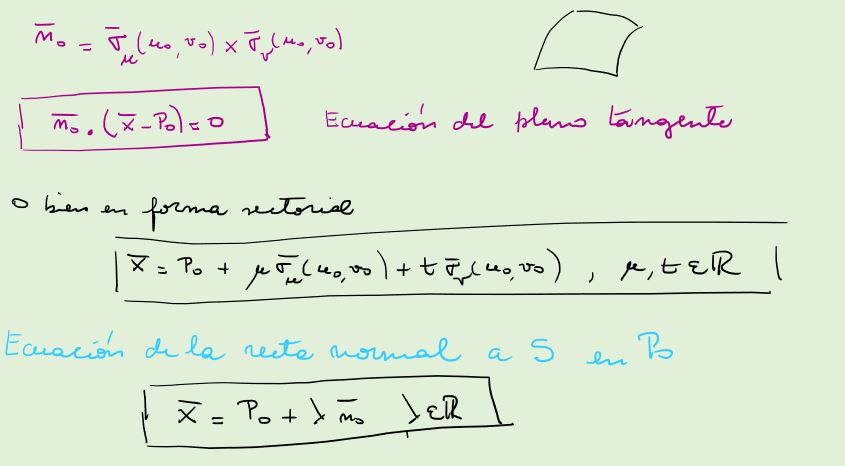 n̄₀ = σ̄ᵤ(u₀, v₀) × σ̄ᵥ(u₀, v₀)
n̄₀ · (x̄ - P₀) = 0 Ecuación del plano tangente
o bien en forma vectorial
x̄ = P₀ + μ σ̄ᵤ(u₀, v₀) + t σ̄ᵥ(u₀, v₀) , μ, t ∈ ℝ
Ecuación de la recta normal a S en P₀
x̄ = P₀ + λ n̄₀ λ ∈ ℝ